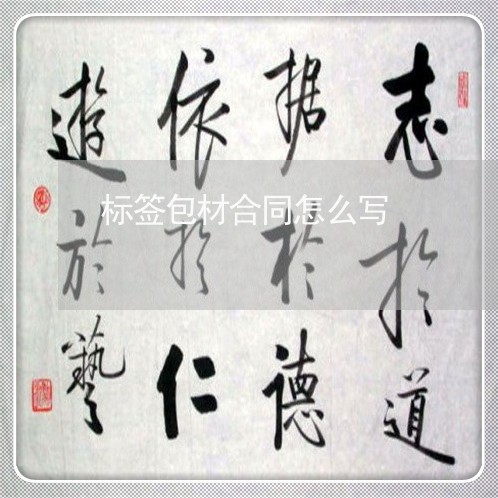 志於道
据於德
依於仁
遊於藝
标签包材合同怎么写